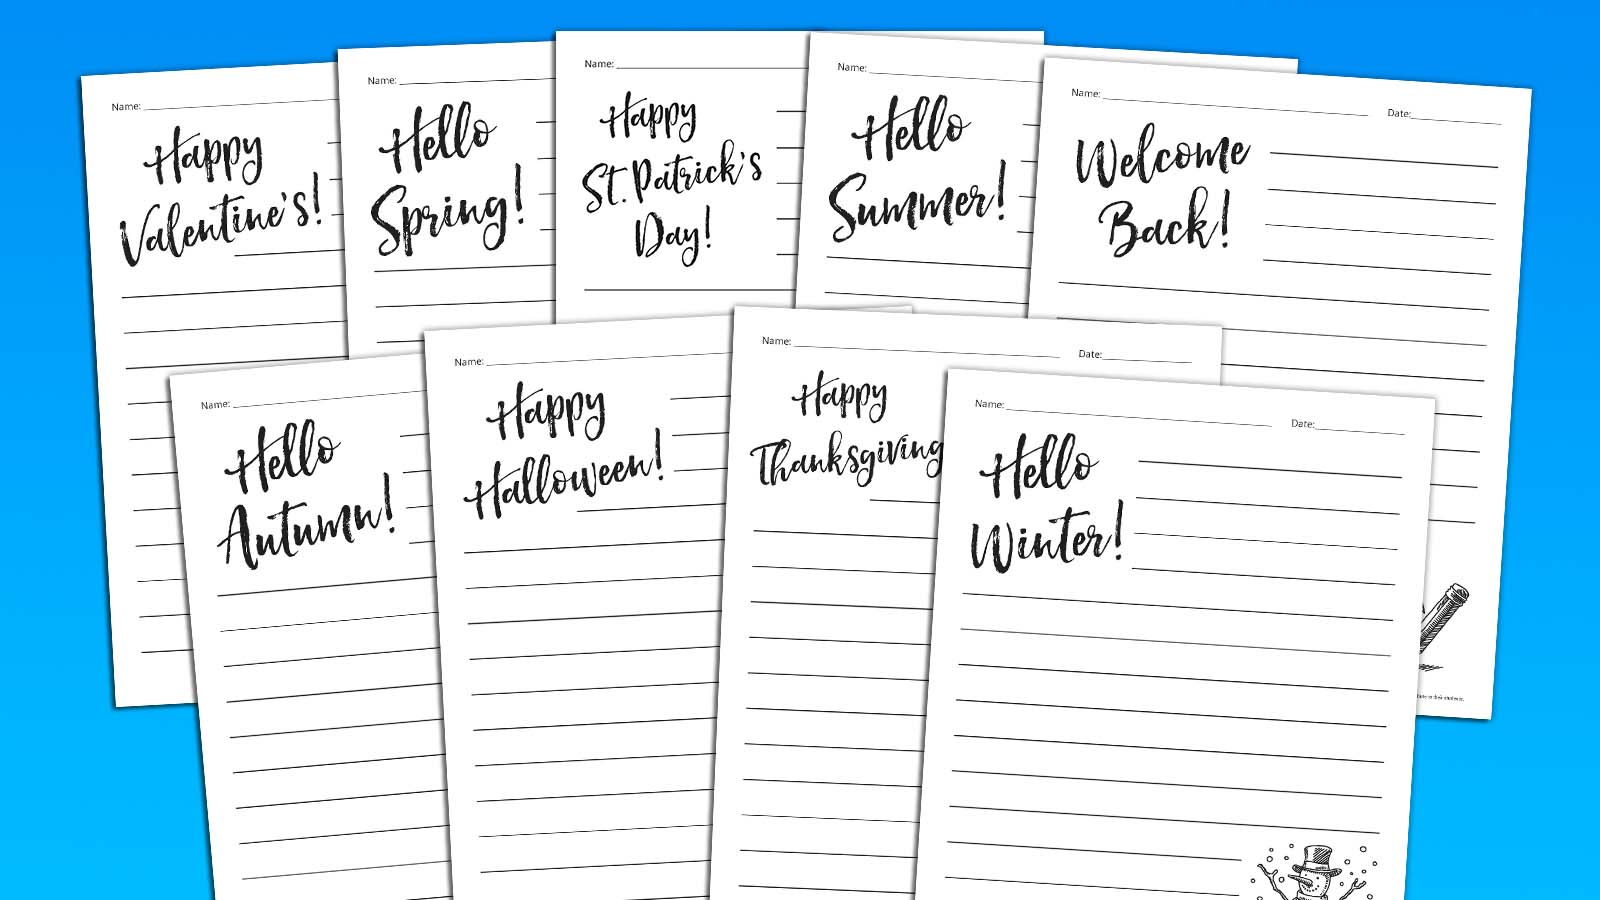 Name:
Happy
Valentine's!
Name:
Hello
Spring!
Name:
Happy
St. Patrick's
Day!
Name:
Hello
Summer!
Name: Date:
Welcome
Back!
Name:
Hello
Autumn!
Name:
Happy
Halloween!
Name: Date:
Happy
Thanksgiving
Name: Date:
Hello
Winter!
to their students.